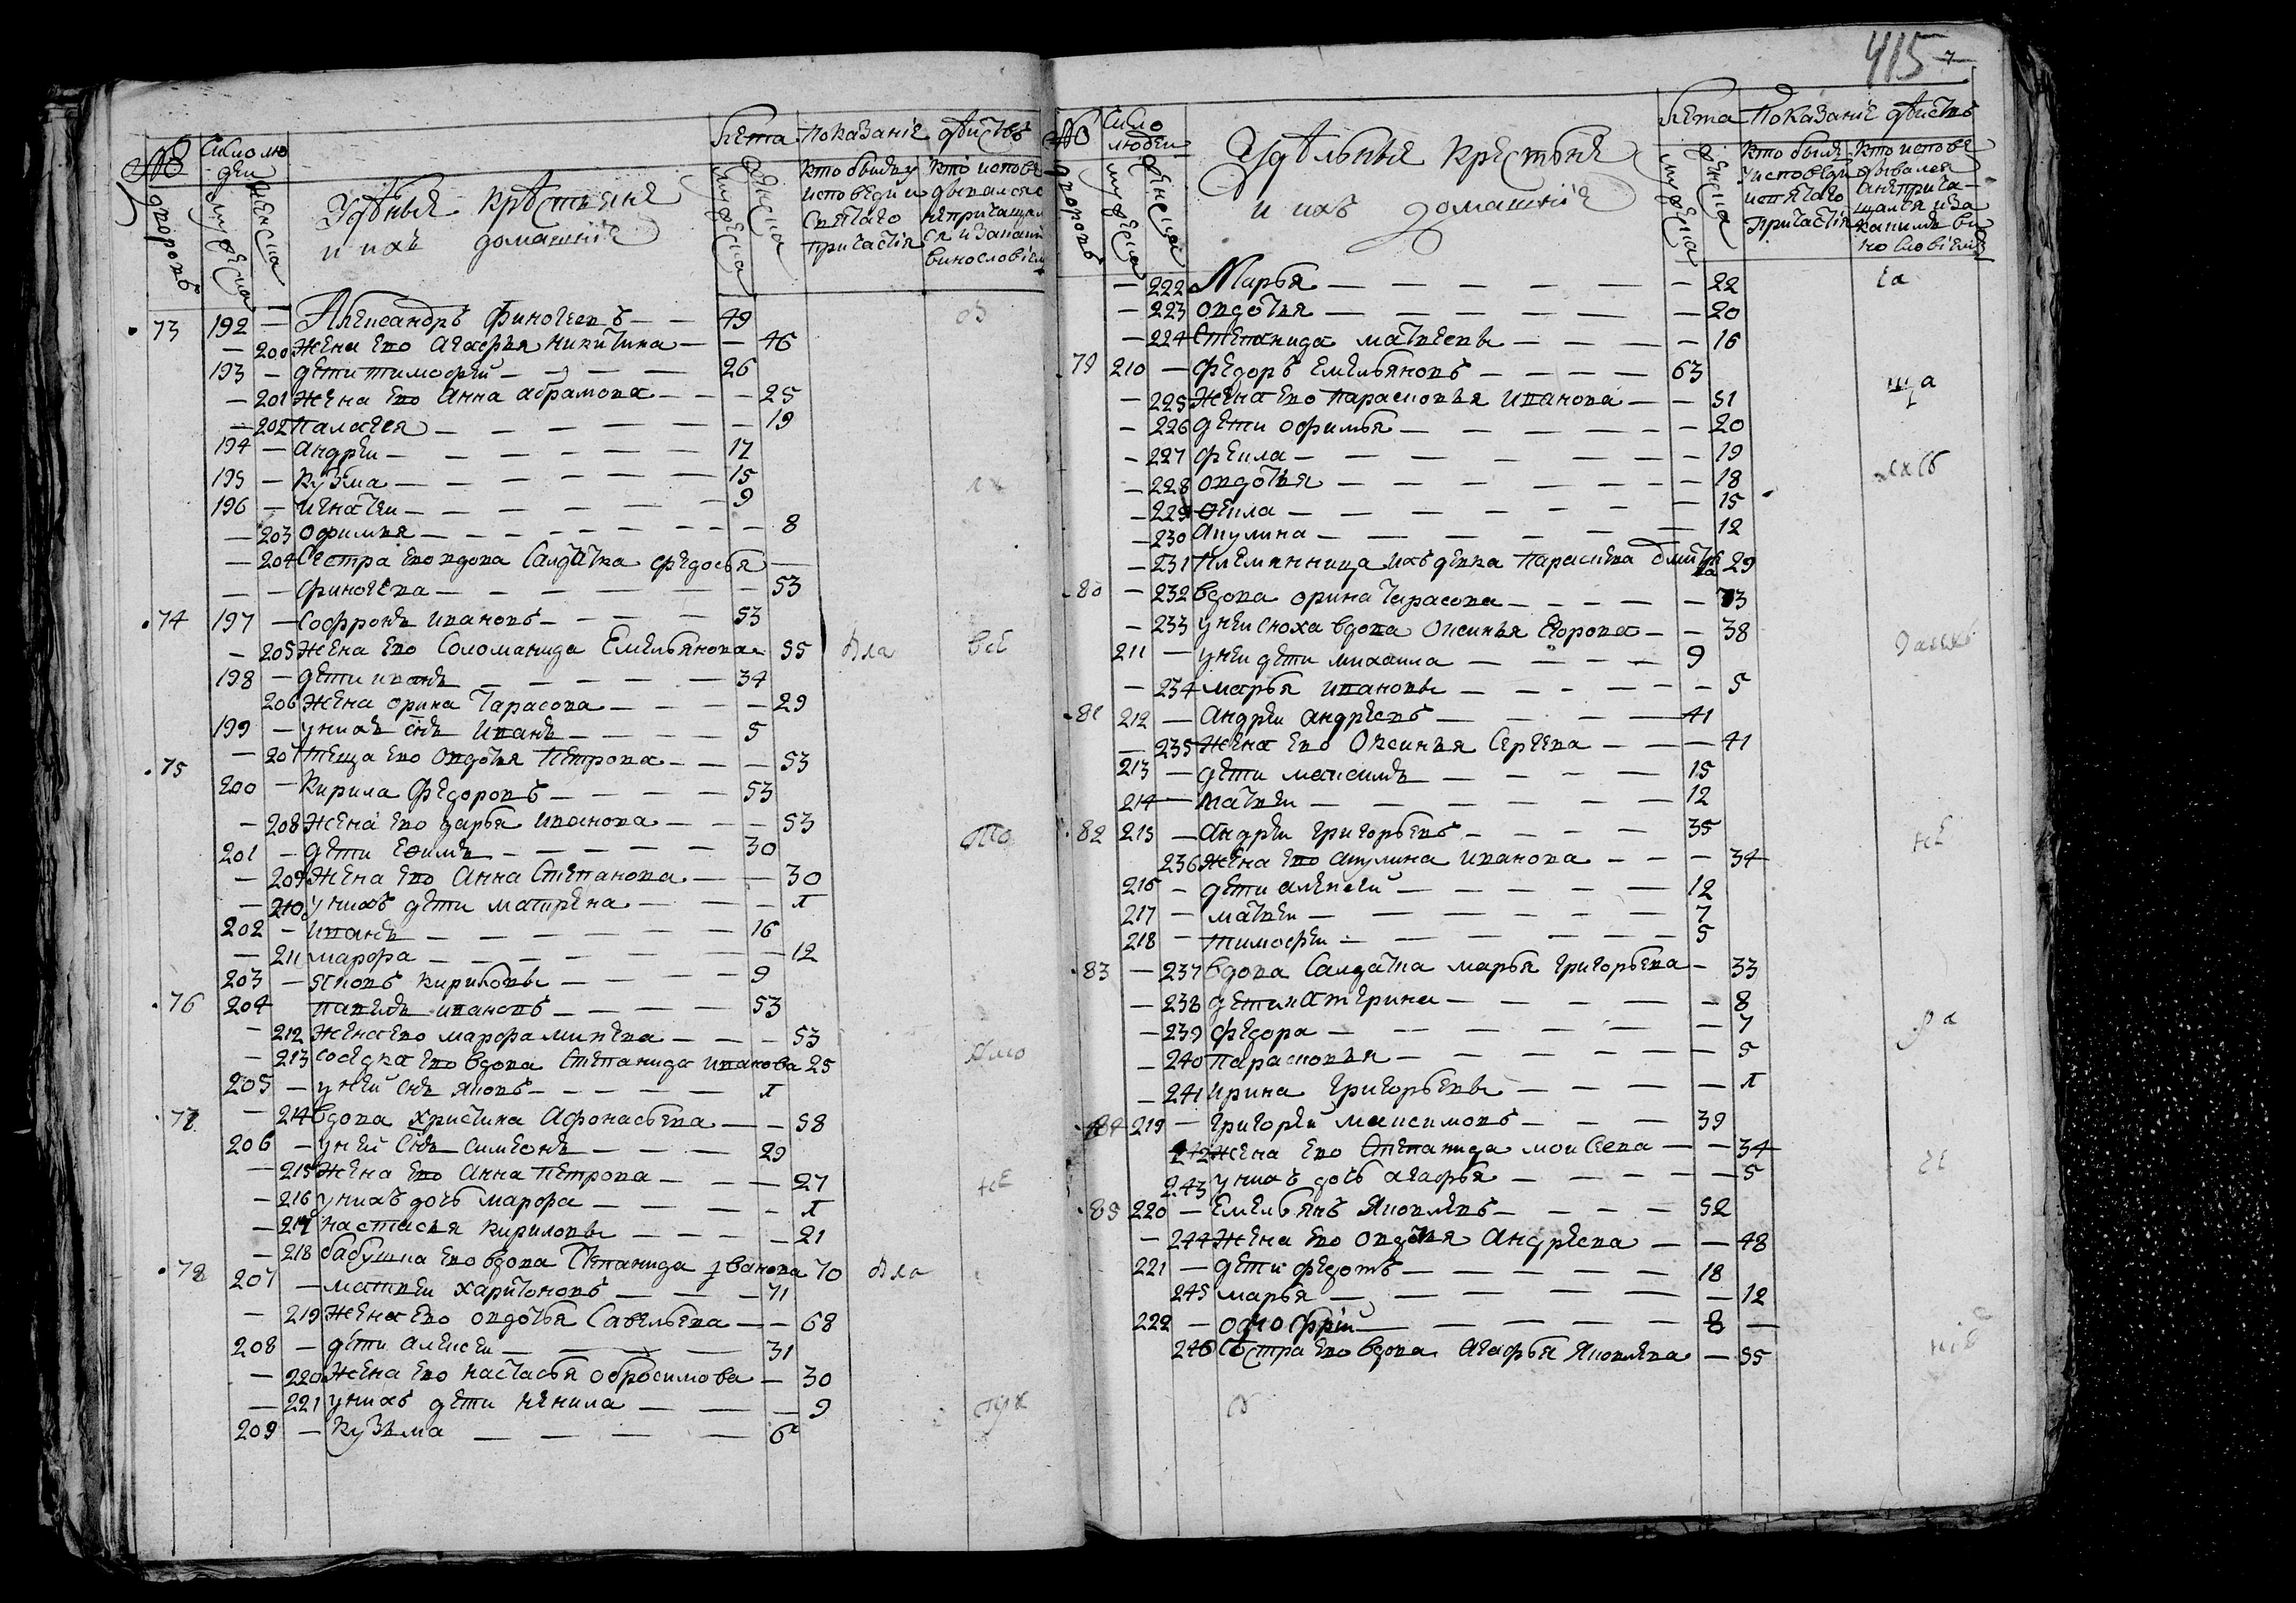 415
№ дворовъ
Число людей
мужеска
женска
Удѣлныя крестьяня
и ихъ домашнїе
Лета
мужеска
женска
Показанїе действъ
кто были у
исповеди и
святаго
причастїя
кто испове
дывался
а не причащал
ся и за каким
винословїем
73 192 — Александръ Финогеевъ — — 49
— 200 жена ево Агафья Никитина — — 46
193 — дети Тимофей — — — 26
— 201 жена ево Анна Абрамова — — — 25
— 202 Палагея — — — — — 19
194 — Андреи — — — — — 17
195 — Кузма — — — — — 15
196 — Игнатеи — — — — — 9
— 203 Офимья — — — — — 8
— 204 Сестра ево вдова Салдатка Федосья —
— — Финогеева — — — — — 53
74 197 — Софронъ Ивановъ — — — 53
— 205 жена ево Соломанида Емельянова — 55
198 — дети Иванъ — — — — 34
206 жена Орина Тарасова — — — 29
199 — у нихъ снъ Иванъ — — — — 5
— 207 теща ево Овдотья Петрова — — — 53
75
200 — Кирила Федоровъ — — — — 53
— 208 жена ево Дарья Иванова — — — 53
201 — дети Ефимъ — — — — — 30
— 209 жена ево Анна Степанова — — 30
— 210 у нихъ дети Матрена — — —
202 — Иванъ — — — — — 16
— 211 Марфа — — — — — 12
203 — Яковъ Кириловы — — — 9
76 204 Павелъ Ивановъ — — — — 53
— 212 жена ево Марфа Минеева — — — 53
— 213 соседка ево вдова Степанида Иванова 25
205 — у ней снъ Яковъ — — — —
77 — 214 вдова Христина Афонасьева — — 58
206 — у ней снъ Симеонъ — — — 29
— 215 жена ево Анна Петрова — — — 27
— 216 у нихъ дочь Марфа — — — —
— 217 Настасья Кириловы — — — — 21
— 218 бабушка ево вдова Степанида Иванова 70
78 207 — Матвеи Харитоновъ — — — 71
— 219 жена ево Овдотья Савельева — — 68
208 — дети Алексеи — — — — 31
— 220 жена ево Настасья Обросимова — 30
— 221 у нихъ дети Ненила — — — 9
209 — Кузьма — — — — 6
№ дворовъ
Число людеи
мужеска
женска
Удѣльныя крестьяня
и ихъ домашнїе
Лета
мужеска
женска
Показанїе действъ
кто были
у исповеди
и святаго
причастїя
кто испове
дывался
а не прича-
щался и за
каким ви
нословїем
— 222 Марья — — — — — 22
— 223 Овдотья — — — — — 20
— 224 Степанида Матвеевы — — — — 16
79 210 — Федоръ Емельяновъ — — — — 63
— 225 жена ево Парасковья Иванова — — 51
— 226 дети Офимья — — — — — 20
— 227 Фекла — — — — — 19
— 228 Овдотья — — — — — 18
— 229 Фекла — — — — — 15
— 230 Акулина — — — — — 12
— 231 племянница ихъ девка Парасковья 29
80 — 232 вдова Орина Тарасова — — — — 73
— 233 у неи сноха вдова Оксинья Егорова — — 38
211 — у неи дети Михаила — — — — 9
— 234 Марья Ивановы — — — — — 5
81 212 — Андреи Андреевъ — — — — 41
— 235 жена ево Оксинья Сергеева — — — 41
213 — дети Максимъ — — — — 15
214 — Матвеи — — — — — 12
82 215 — Андреи Григорьевъ — — — — 35
236 жена ево Акулина Иванова — — — 34
216 — дети Алексеи — — — — — 12
217 — Матвеи — — — — — 7
218 — Тимофеи — — — — — 5
83 — 237 вдова Салдатка Марья Григорьева — 33
— 238 дети Катерина — — — — — 8
— 239 Федора — — — — — 7
— 240 Парасковья — — — — — 5
— 241 Ирина Григорьевы — — — —
84 219 — Григореи Максимовъ — — — 39
242 жена ево Степанида Моисеева — — 34
243 у нихъ дочь Агафья — — — — 5
85 220 — Емельянъ Яковлевъ — — — — 52
— 244 жена ево Овдотья Андреева — — 48
221 — дети Федотъ — — — — — 18
245 Марья — — — — — 12
222 — — — — — — 8 —
246 Сестра ево вдова Агафья Яковлева — 55